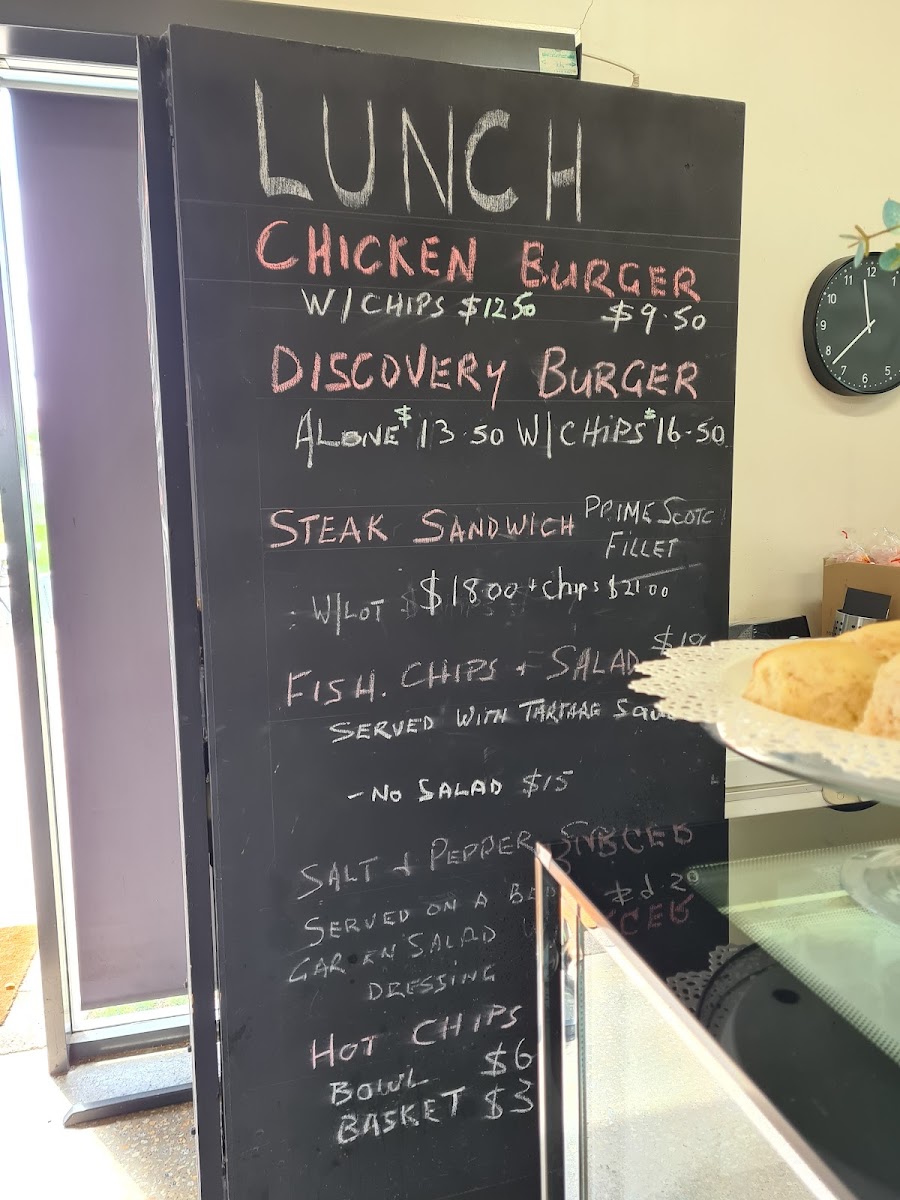 LUNCH
CHICKEN BURGER
W/CHIPS $12.50 $9.50
DISCOVERY BURGER
ALONE $13.50 W/CHIPS $16.50
STEAK SANDWICH PRIME SCOTC
FILLET
W/LOT $1800 + Chips $21.00
FISH. CHIPS + SALAD
SERVED WITH TARTARE
- NO SALAD $15
SALT + PEPPER
SERVED ON A
GARDEN SALAD
DRESSING
HOT CHIPS
BOWL $6
BASKET $3
11 12
10
9
8
7 6 5